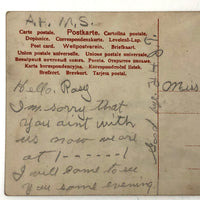 A.F. M.S.
Carte postale. Postkarte. Cartolina postale.
Dopisnice. Correspondenzkarte. Levelező-Lap.
Post card. Weltpostverein. Briefkaart.
Union postale universelle. Unione postale universale.
Всемірный почтовый союзъ. Россія. Открытое письмо.
Karta korespondencyjna. Korespondenční lístek.
Brefkort. Brevkort. Tarjeta postal.
Hello. Rosy
I'm sorry that
you aint with
us now we are
at 1-------!
I will come to see
you some evening
Good bye
Miss